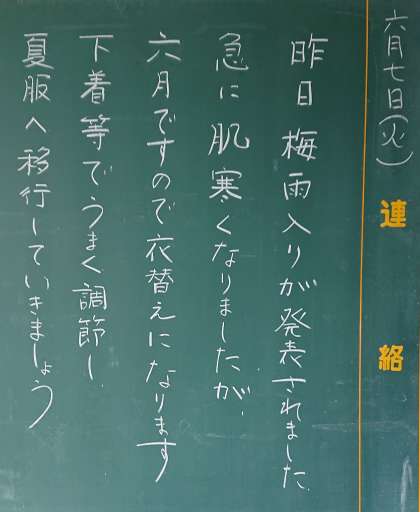 六月七日(火)
連絡
昨日梅雨入りが発表されました
急に肌寒くなりましたが、
六月ですので衣替えになります
下着等でうまく調節し、
夏服へ移行していきましょう